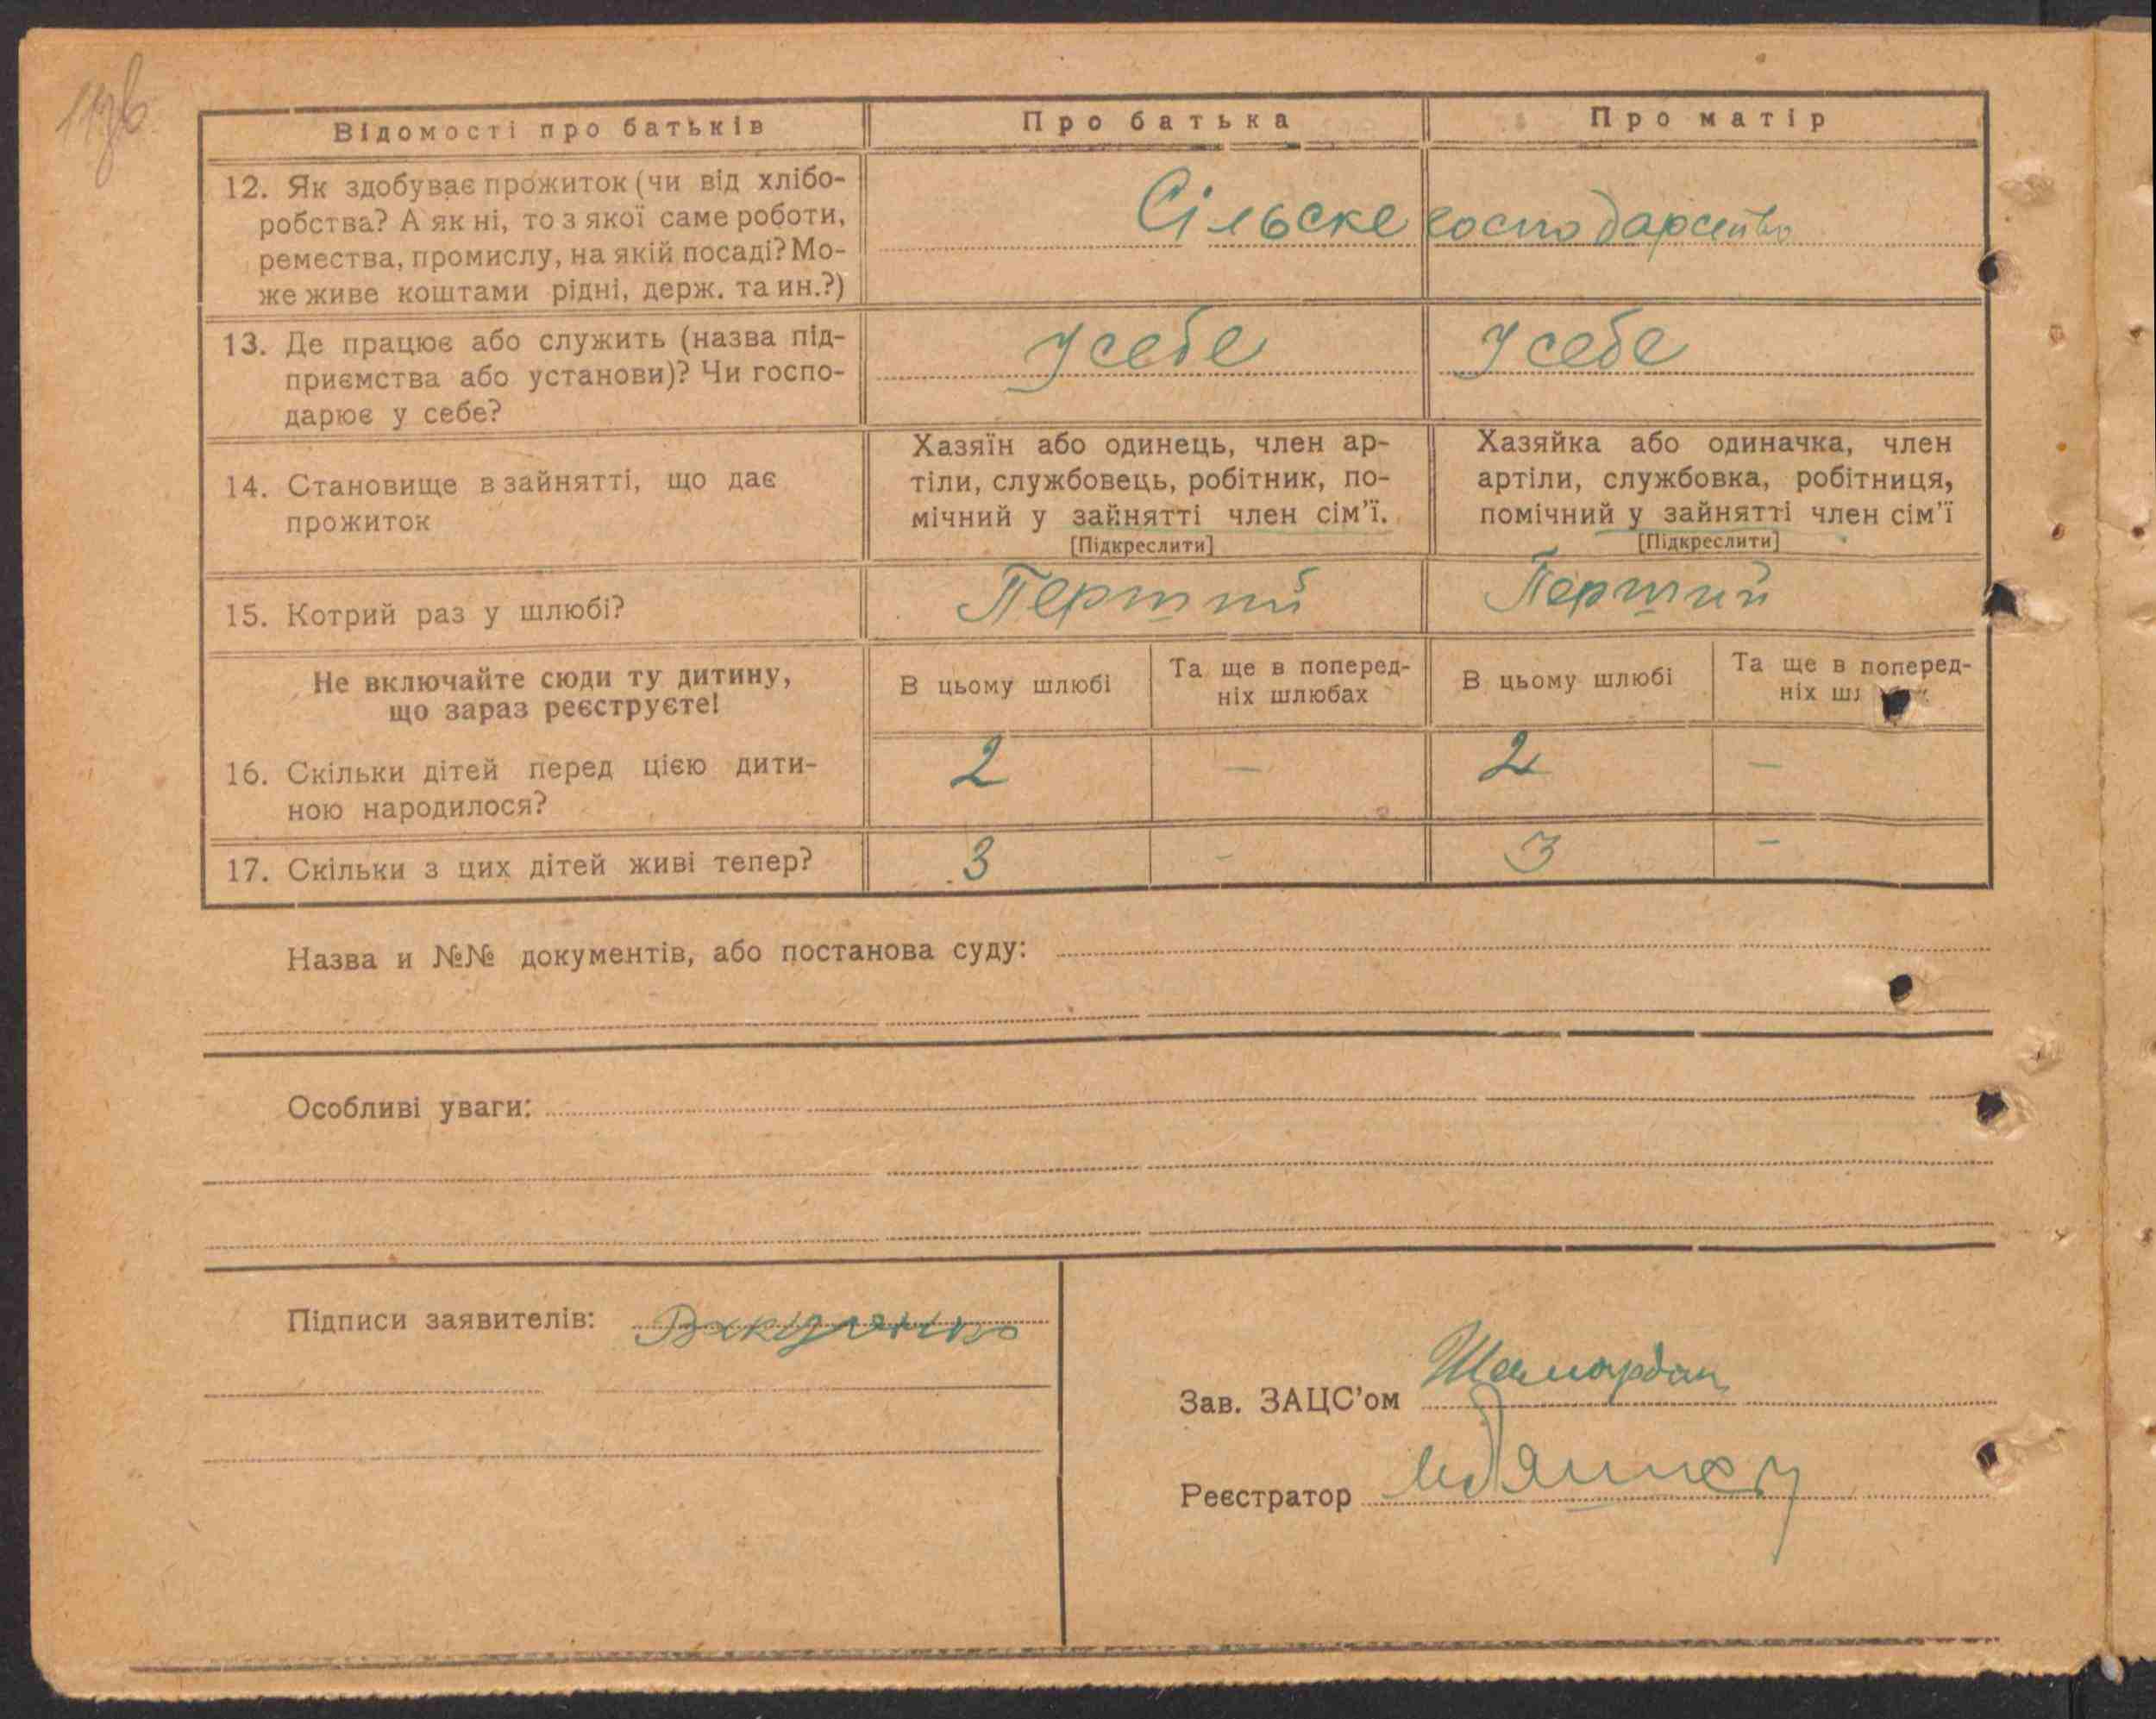 Відомості про батьків
Про батька
Про матір
12. Як здобуває прожиток (чи від хлібо-
робства? А як ні, то з якої саме роботи,
ремества, промислу, на якій посаді? Мо-
же живе коштами рідні, держ. та ин.?)
Сільске господарство
13. Де працює або служить (назва під-
приємства або установи)? Чи госпо-
дарює у себе?
у себе
у себе
14. Становище в зайнятті, що дає
прожиток
Хазяїн або одинець, член ар-
тіли, службовець, робітник, по-
мічний у зайнятті член сім'ї.
[Підкреслити]
Хазяйка або одиначка, член
артіли, службовка, робітниця,
помічний у зайнятті член сім'ї
[Підкреслити]
15. Котрий раз у шлюбі?
Перший
Перший
Не включайте сюди ту дитину,
що зараз реєструєте!
В цьому шлюбі
Та ще в поперед-
ніх шлюбах
В цьому шлюбі
Та ще в поперед-
ніх
16. Скільки дітей перед цією дити-
ною народилося?
2
—
2
—
17. Скільки з цих дітей живі тепер?
3
-
3
-
Назва и №№ документів, або постанова суду:
Особливі уваги:
Підписи заявителів:
Зав. ЗАЦС'ом Шамардан
Реєстратор